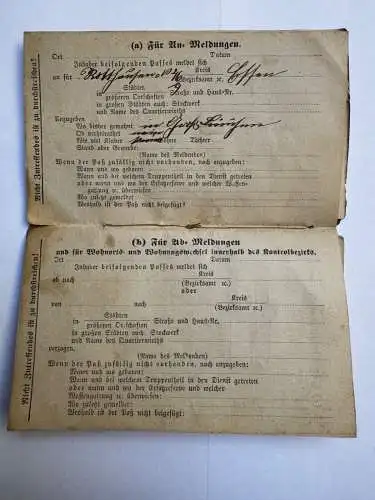 Nicht Zutreffendes ist zu durchstreichen!
(a) Für An-Meldungen.
Ort Datum
Inhaber beifolgenden Passes meldet sich
an für Rotthausen Kreis Essen
(Bezirksamt ꝛc.
Städten
in größeren Ortschaften Straße und Haus-Nr.
in großen Städten auch: Stockwerk
und Name des Quartierwirths
Angezogen
Wo bisher gewohnt
Ob verheirathet
Wie viel Kinder Töchter
Stand oder Gewerbe:
(Name des Meldenden)
Wenn der Paß zufällig nicht vorhanden, noch anzugeben:
Wann und wo geboren:
Wann und bei welchem Truppentheil in den Dienst getreten
oder wann und wo der Ersatzreserve und welcher Waffen-
gattung ꝛc. überwiesen:
Wo zuletzt gemeldet:
Weshalb ist der Paß nicht beigefügt?
Nicht Zutreffendes ist zu durchstreichen!
(b) Für Ab-Meldungen
und für Wohnorts- und Wohnungswechsel innerhalb des Kontrolbezirks.
Ort Datum
Inhaber beifolgenden Passes meldet sich
ab nach Kreis
(Bezirksamt ꝛc.)
oder
von nach Kreis
(Bezirksamt ꝛc.)
Städten
in größeren Ortschaften Straße und Haus-Nr.
in großen Städten auch: Stockwerk
und Name des Quartierwirths
verzogen.
(Name des Meldenden)
Wenn der Paß zufällig nicht vorhanden, noch anzugeben:
Wann und wo geboren:
Wann und bei welchem Truppentheil in den Dienst getreten
oder wann und wo der Ersatzreserve und welcher
Waffengattung ꝛc. überwiesen:
Wo zuletzt gemeldet:
Weshalb ist der Paß nicht beigefügt: